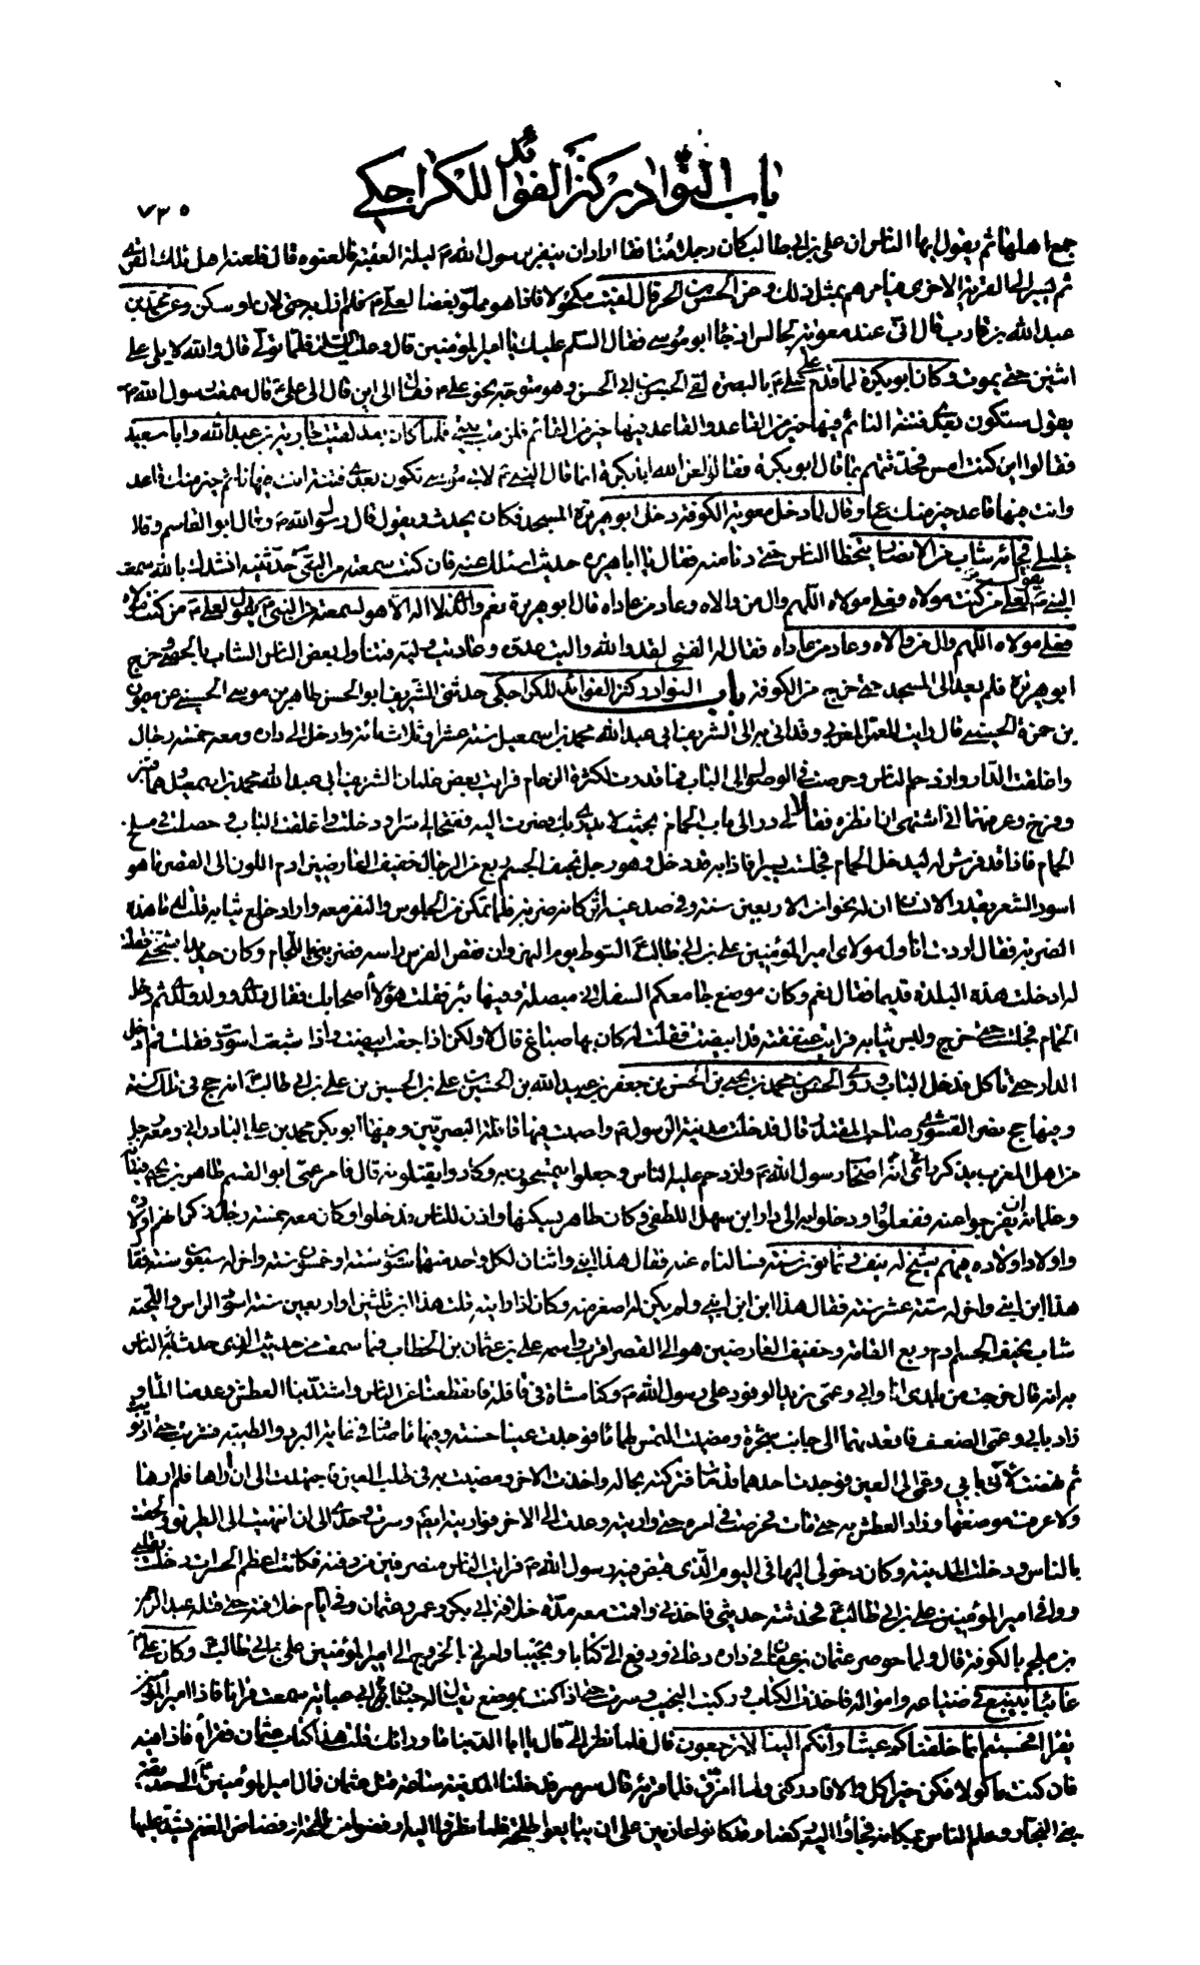 باب النوادر من كنز الفوائد للكراجكي
٧٣٥
جمع اهلها ثم يقول ايها الناس ان علي بن ابي طالب كان رجلا منافقا اراد ان ينفر برسول الله ص ليلة العقبة فالعنوه قال فلعنه اهل تلك القرية
ثم يسير الى القرية الاخرى فيامرهم بمثل ذلك وعن الحسن بن الحر قال لقيت مكحولا فاذا هو مملو بغضا لعلي ع فلم ازل به حتى لان او سكن وعن محمد بن
عبد الله بن قارب قال اني عند معوية لجالس اذ جاء ابو موسى فقال السلم عليك يا امير المؤمنين قال وعليك السلام فلما تولى قال والله لا يلي على
اثنين حتى يموت وكان ابو بكرة لما قدم علي ع البصرة لقي الحسن بن ابي الحسن وهو متوجه نحو علي ع فقال الى اين قال الى علي قال سمعت رسول الله ص
يقول ستكون بعدي فتنة النائم فيها خير من القاعد والقاعد فيها خير من القائم فلزمت بيتي فلما كان بعد لقيت جابر بن عبد الله وابا سعيد
فقالوا اين كنت امس فحدثتهم بما قال ابو بكرة فقالوا لعن الله ابا بكرة انما قال النبي ص لابي موسى تكون بعدي فتنة انت فيها نائم خير منك قاعد
وانت فيها قاعد خير منك ساع وقال لما دخل معوية الكوفة دخل ابو هريرة المسجد فكان يحدث ويقول قال رسول الله ص وقال ابو القاسم وقال
خليلي فجائه شاب من الانصار يتخطا الناس حتى دنا منه فقال يا ابا هريرة حديث اسئلك عنه فان كنت سمعته من النبي ص حدثنيه انشدك بالله سمعت
النبي ص يقول لعلي من كنت مولاه فعلي مولاه اللهم وال من والاه وعاد من عاداه قال ابو هريرة نعم والذي لا اله الا هو لسمعته من النبي ص يقول لعلي ع من كنت مولاه
فعلي مولاه اللهم وال من والاه وعاد من عاداه فقال له الفتى لقد والله واليت عدوه وعاديت وليه فتناول بعض الناس الشاب بالحصى وخرج
ابو هريرة فلم يعد الى المسجد حتى خرج من الكوفة باب النوادر كنز الفوائد للكراجكي حدثني الشريف ابو الحسن طاهر بن موسى الحسيني عن ميمون
بن حمزة الحسيني قال رايت المعمر المغربي وقد اتي به الى الشريف ابي عبد الله محمد بن اسمعيل سنة عشر وثلاث مائة وادخل الى داره ومعه خمسة رجال
واغلقت الدار وازدحم الناس وحرصت في الوصول الى الباب فما قدرت لكثرة الزحام فرايت بعض غلمان الشريف ابي عبد الله محمد بن اسمعيل هما قنبر
وفرج وعرفتهما اني اشتهي ان انظره فقالا لي در الى باب الحمام بحيث لا يدري بك فصرت اليه ففتحا لي سرا ودخلت واغلقت الباب وحصلت في مسلخ
الحمام فاذا قد فرش له ليدخل الحمام فجلست يسيرا فاذا به قد دخل وهو رجل نحيف الجسم ربع من الرجال خفيف العارضين ادم اللون الى القصر ما هو
اسود الشعر يقدر الانسان ان له نحوا من الاربعين سنة وفي صدغه اثر كانه ضربة فلما تمكن من الجلوس والنفر معه واراد خلع ثيابه قلت له ما هذه
الضربة فقال اردت اناول مولاي امير المؤمنين علي بن ابي طالب ع السوط يوم النهروان فنفض الفرس راسه فضربني اللجام وكان حديدا فشجني فقلت
له ادخلت هذه البلدة قديما فقال نعم وكان موضع جامعكم السفلاني مبصلة وفيها بئر فقلت هؤلاء اصحابك فقال ولدي وولد ولدي ثم دخل
الحمام فجلست حتى خرج ولبس ثيابه فرايت عنفقته قد ابيضت فقلت له كان بها صباغ قال لا ولكن اذا جعت ابيضت واذا شبعت اسودت فقلت قم ادخل
الدار حتى تاكل فدخل الباب وروى الحسن بن محمد بن يحيى بن الحسن بن جعفر بن عبيد الله بن الحسين بن علي بن الحسين بن علي بن ابي طالب ع انه حج في تلك السنة
وفيها حج نصر القشوري صاحب المقتدر قال فدخلت مدينة الرسول ص واصبت فيها قافلة البصريين وفيها ابو بكر محمد بن علي المادراني ومعه رجل
من اهل المغرب يذكر انه راى اصحاب رسول الله ص وازدحم عليه الناس وجعلوا يتمسحون به وكادوا يقتلونه قال فامر عمي ابو القسم طاهر بن يحيى فتيانه
وغلمانه ان يفرجوا عنه ففعلوا ودخلوا به الى دار ابن سهل اللطفي وكان طاهر يسكنها واذن للناس فدخلوا وكان معه خمسة رجال ذكر انهم اولاده
واولاد اولاده فيهم شيخ له نيف وثمانون سنة فسالناه عنه فقال هذا ابني واثنان لكل واحد منهما ستون سنة او خمسون سنة واخر له سبع عشرة سنة فقال
هذا ابن ابني واخر له ستة عشر سنة فقال هذا ابن ابن ابني ولم يكن له اصغر منه وكان اذا رايته قلت هذا ابن ثلثين او اربعين سنة اسود الراس واللحية
شاب نحيف الجسم ادم ربع القامة وخفيف العارضين هو الى القصر اقرب واسمه علي بن عثمان بن الخطاب فمما سمعت من حديثه الذي حدث به الناس
به انه قال خرجت من بلدي انا وابي وعمي نريد الوفود على رسول الله ص وكنا مشاة في قافلة فانقطعنا عن الناس واشتد بنا العطش وعدمنا الماء
وزاد بابي وعمي الضعف فاقعدتهما الى جانب شجرة ومضيت التمس لهما ماء فوجدت عينا حسنة وفيها ماء صاف في غاية البرد والطيبة فشربت حتى ارتويت
ثم نهضت لآتي بابي وعمي الى العين فوجدت احدهما قد مات فتركته بحاله واخذت الاخر ومضيت به في طلب العين فاجتهدت الى ان اراها فلم ارها
ولا عرفت موضعها وزاد العطش به حتى مات فحرصت في امره حتى واريته وعدت الى الاخر فواريته ايضا وسرت وحدي الى ان انتهيت الى الطريق ولحقت
بالناس ودخلت المدينة وكان دخولي اليها في اليوم الذي قبض فيه رسول الله ص فرايت الناس منصرفين من دفنه فكانت اعظم الحسرات دخلت بقلبي
ورآني امير المؤمنين علي بن ابي طالب ع فحدثته حديثي فاخذني واقمت معه مدة خلافة ابي بكر وعمر وعثمان وفي ايام خلافته حتى قتله عبد الرحمن
بن ملجم بالكوفة قال ولما حوصر عثمان بن عفان في داره دعاني ودفع الي كتابا ونجيبا وامرني بالخروج الى امير المؤمنين علي بن ابي طالب ع وكان علي ع
غائبا بينبع في ضياعه وامواله فاخذت الكتاب وركبت النجيب وسرت حتى اذا كنت بموضع يقال له جنان ابي عباية سمعت قرانا فاذا امير المؤمنين
يقرا افحسبتم انما خلقناكم عبثا وانكم الينا لا ترجعون قال فلما نظر الي قال يا ابا الدنيا ما وراك قلت هذا كتاب عثمان فقراه فاذا فيه
فان كنت ماكولا فكن خير آكل والا فادركني ولما امزق فلما قراه قال سر سر فدخلنا المدينة ساعة قتل عثمان فمال امير المؤمنين ع الى حديقة
بني النجار وعلم الناس بمكانه فجاؤا اليه ركضا وقد كانوا عازمين على ان يبايعوا طلحة فلما نظروا اليه ارفضوا عن طلحة ارفضاض الغنم يشد عليها